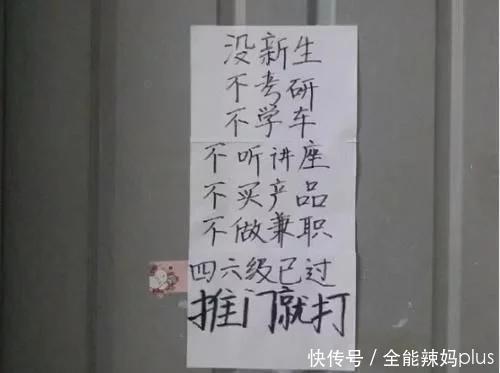 没新生
不考研
不学车
不听讲座
不买产品
不做兼职
四六级已过
推门就打
快传号 / 全能辣妈plus